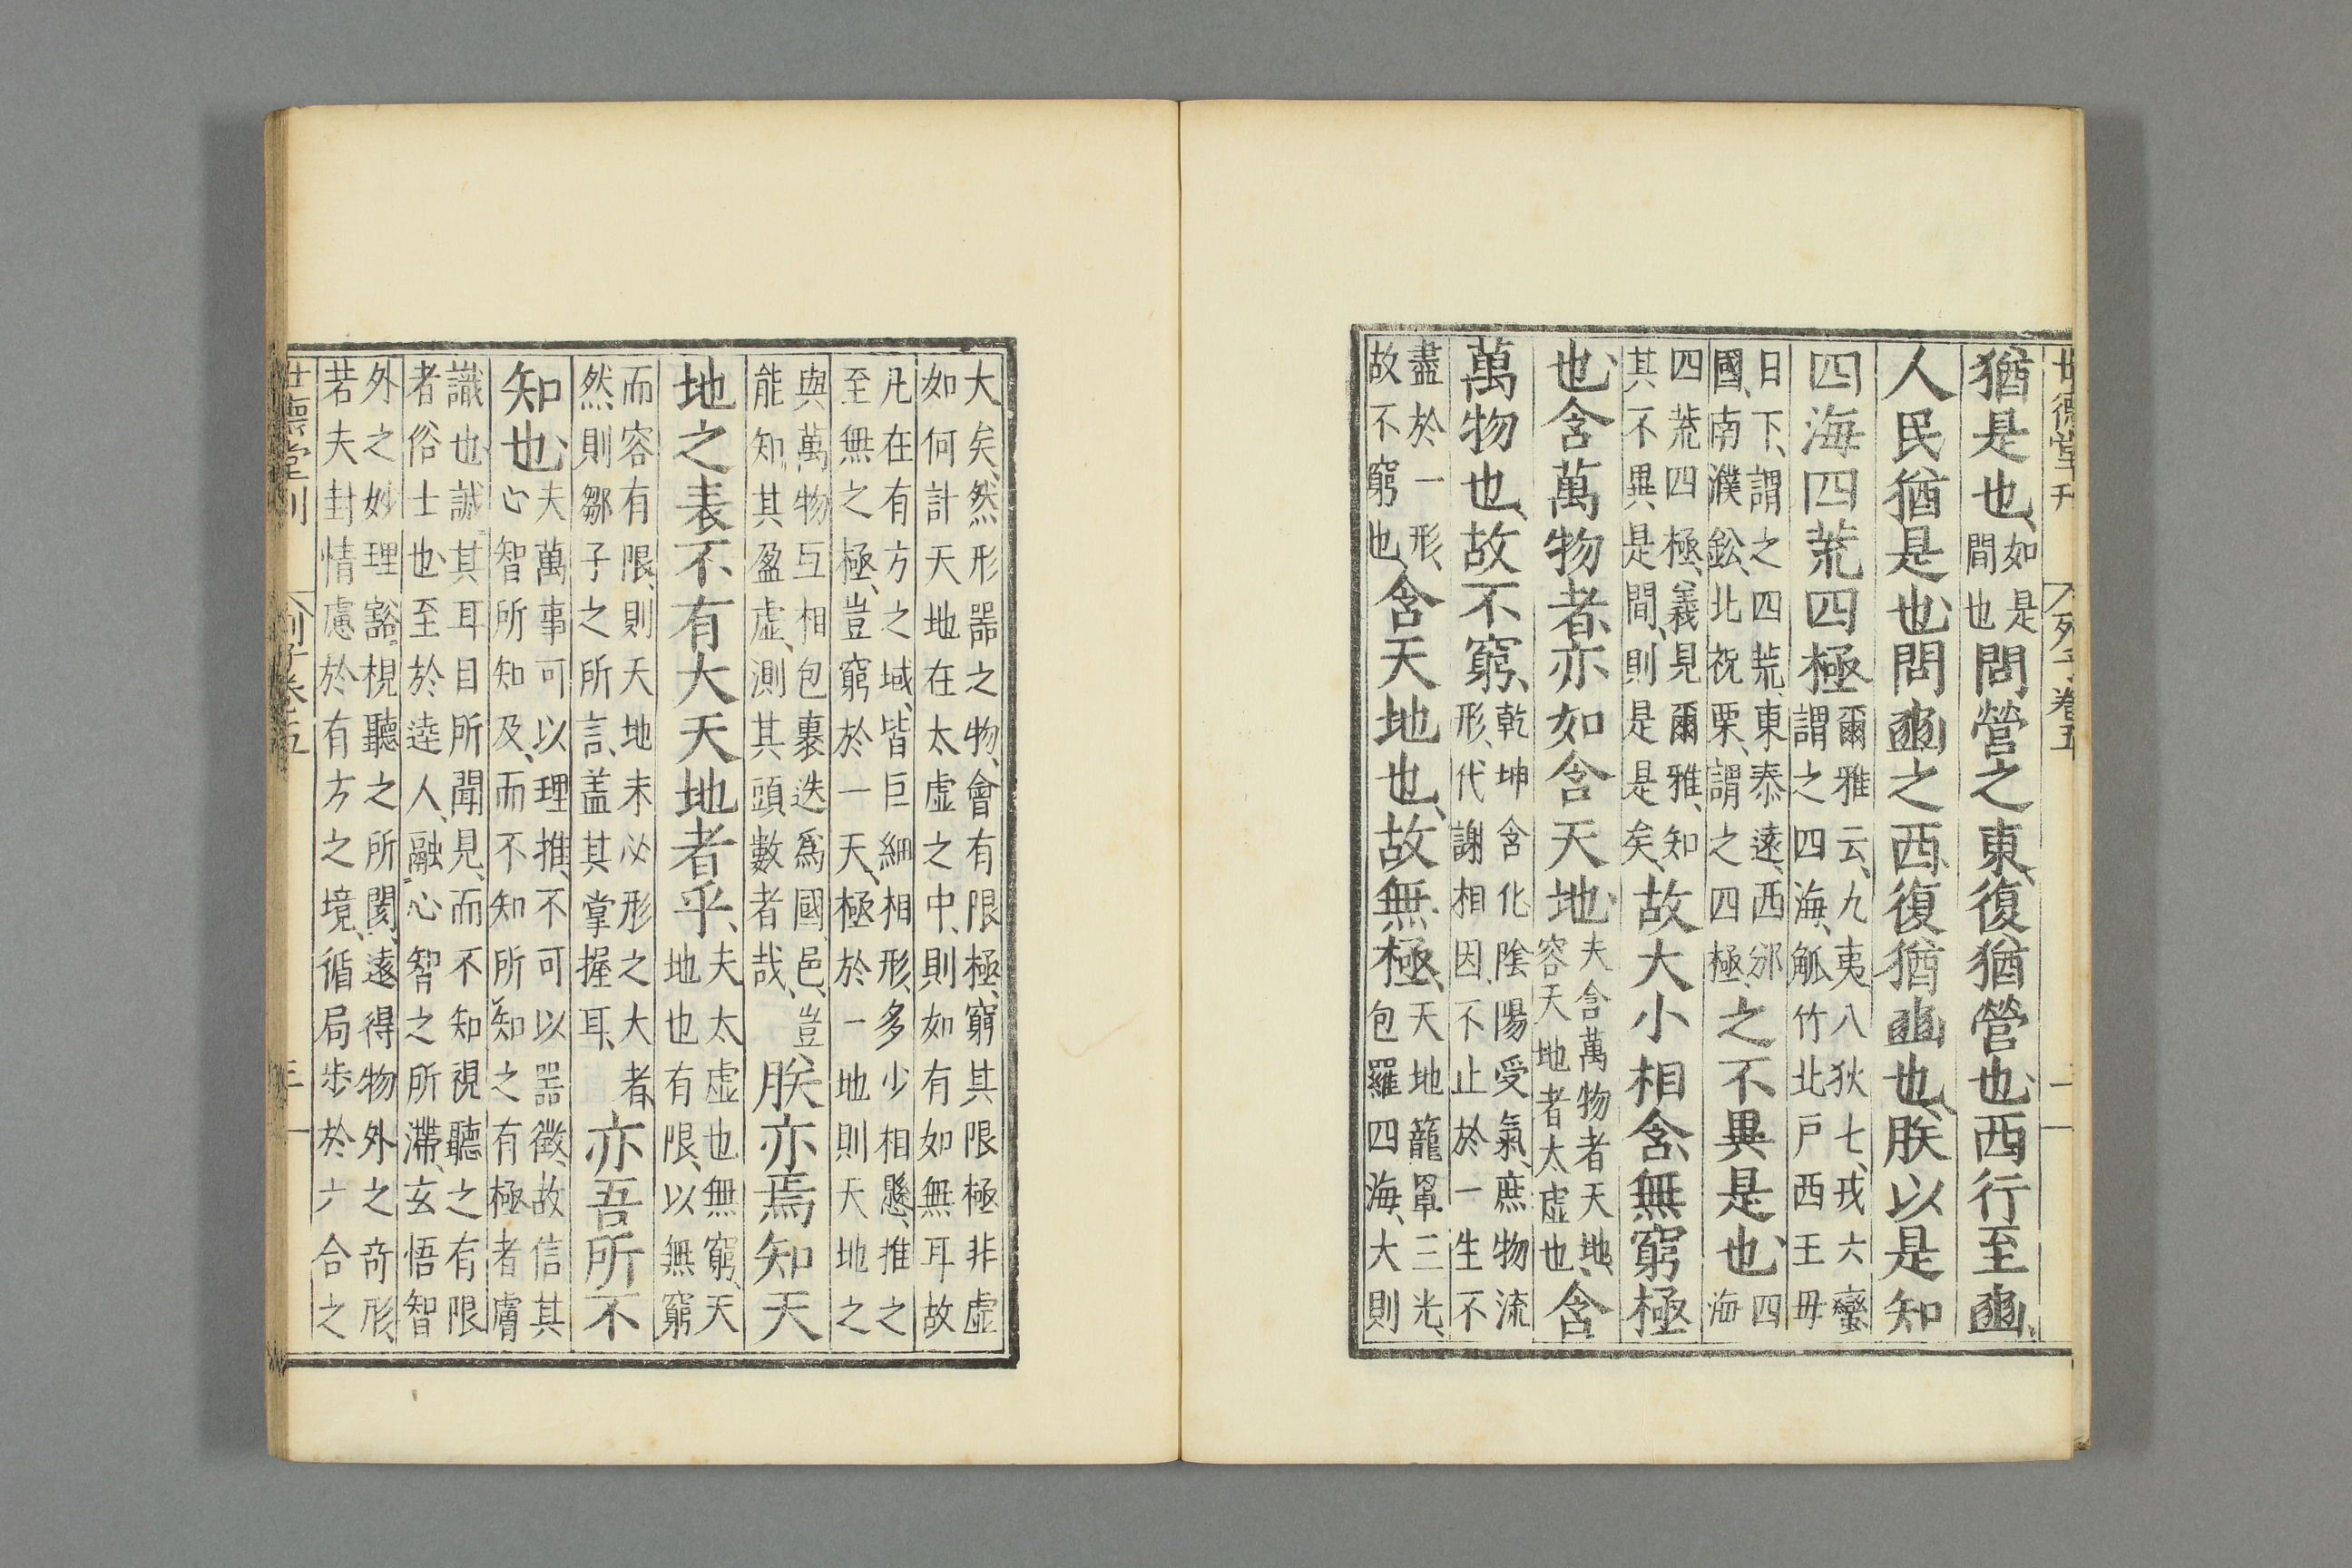 世德堂刊 列子卷五 二
猶是也、如是間也問營之東、復猶營也、西行至豳、
人民猶是也、問豳之西、復猶豳也、朕以是知
四海四荒四極爾雅云、九夷八狄七、戎六蠻
謂之四海、觚竹北戶西王毋
日下、謂之四荒、東泰遠、西邠
國、南濮鈆、北祝栗、謂之四極、之不異是也、四
海
四荒四極、義見爾雅、知
其不異是間、則是是矣、故大小相含、無窮極
也、含萬物者、亦如含天地、夫含萬物者天地、
容天地者太虛也含
萬物也、故不窮、乾坤含化陰陽受氣、庶物流
形、代謝相因、不止於一生不
盡於一形、
故不窮也、含天地也、故無極、天地籠罩三光、
包羅四海、大則
大矣、然形噐之物、會有限極、窮其限極非虛
如何計天地在太虛之中、則如有如無耳故
凡在有方之域、皆巨細相形、多少相懸、推之
至無之極、豈窮於一天、極於一地則天地之
與萬物互相包裹迭爲國邑、豈
能知其盈虛、測其頭數者哉、朕亦焉知天
地之表不有大天地者乎、夫太虛也無窮、天
地也有限、以無窮
而容有限、則天地未必形之大者、
然則鄒子之所言、蓋其掌握耳、亦吾所不
知也、夫萬事可以理推、不可以噐徵、故信其
心智所知及、而不知所知之有極者膚
識也、誠其耳目所聞見、而不知視聽之有限
者、俗士也、至於逹人、融心智之所滯、玄悟智
外之妙理豁、視聽之所閡、遠得物外之奇形、
若夫封情慮於有方之境、循局步於六合之
世德堂刊 列子卷五 三